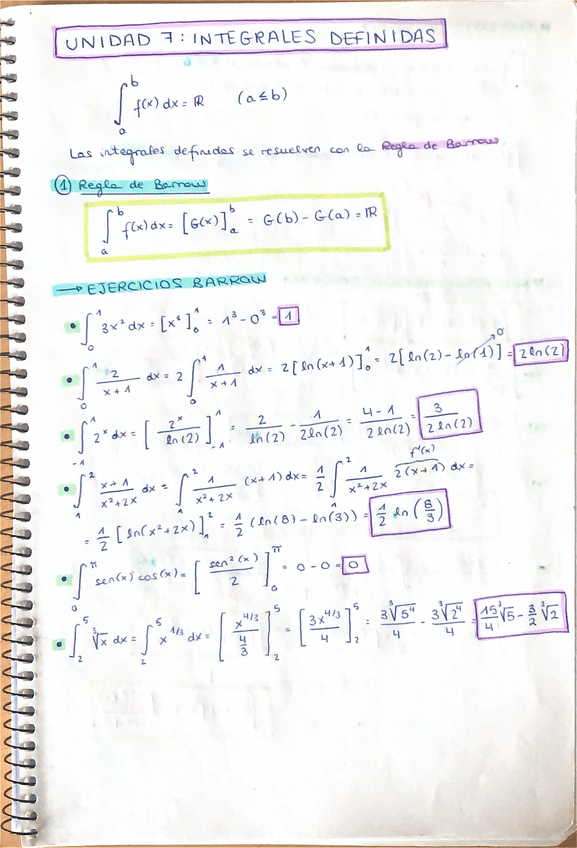 UNIDAD 7: INTEGRALES DEFINIDAS
∫_a^b f(x) dx = ℝ (a ≤ b)
Las integrales definidas se resuelven con la Regla de Barrow.
① Regla de Barrow
∫_a^b f(x) dx = [G(x)]_a^b = G(b) - G(a) = ℝ
→ EJERCICIOS BARROW
• ∫_0^1 3x² dx = [x³]_0^1 = 1³ - 0³ = 1
• ∫_0^1 2/(x+1) dx = 2 ∫_0^1 1/(x+1) dx = 2[ln(x+1)]_0^1 = 2[ln(2) - ln(1)] = 2ln(2)
0
• ∫_-1^1 2^x dx = [2^x/ln(2)]_-1^1 = 2/ln(2) - 1/(2ln(2)) = (4-1)/(2ln(2)) = 3/(2ln(2))
f'(x)
• ∫_1^2 (x+1)/(x²+2x) dx = ∫_1^2 1/(x²+2x) (x+1) dx = 1/2 ∫_1^2 1/(x²+2x) 2(x+1) dx =
= 1/2 [ln(x²+2x)]_1^2 = 1/2 (ln(8) - ln(3)) = 1/2 ln(8/3)
• ∫_0^π sen(x) cos(x) = [sen²(x)/2]_0^π = 0 - 0 = 0
• ∫_2^5 ∛x dx = ∫_2^5 x^(1/3) dx = [x^(4/3)/(4/3)]_2^5 = [3x^(4/3)/4]_2^5 = 3∛5⁴/4 - 3∛2⁴/4 = 15/4 ∛5 - 3/2 ∛2